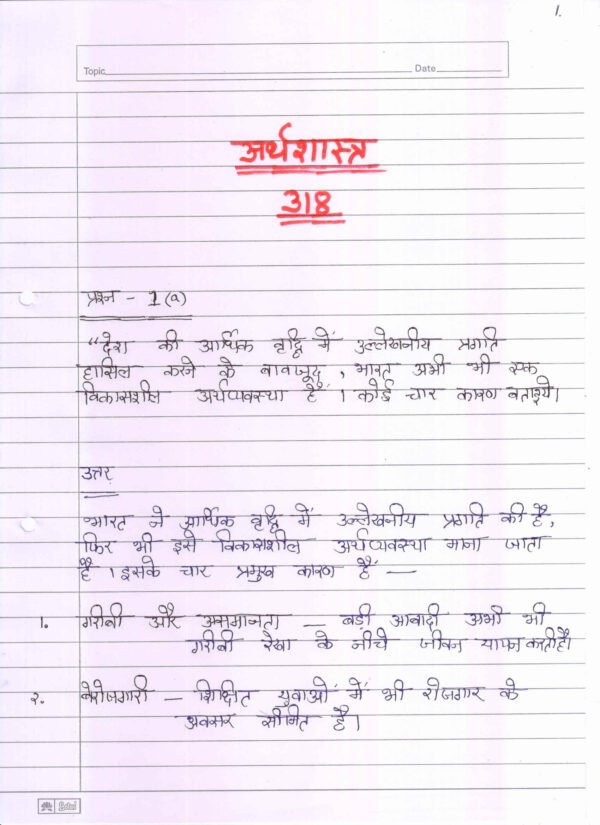 1.
Topic
Date
अर्थशास्त्र
318
प्रश्न - 1 (a)
“देश की आर्थिक वृद्धि में उल्लेखनीय प्रगति
हासिल करने के बावजूद, भारत अभी भी एक
विकासशील अर्थव्यवस्था है। कोई चार कारण बताइये।
उत्तर
भारत ने आर्थिक वृद्धि में उल्लेखनीय प्रगति की है,
फिर भी इसे विकासशील अर्थव्यवस्था माना जाता
है। इसके चार प्रमुख कारण हैं —
1. गरीबी और असमानता — बड़ी आबादी अभी भी
गरीबी रेखा के नीचे जीवन यापन करती है।
२. बेरोजगारी — शिक्षित युवाओं में भी रोजगार के
अवसर सीमित है।